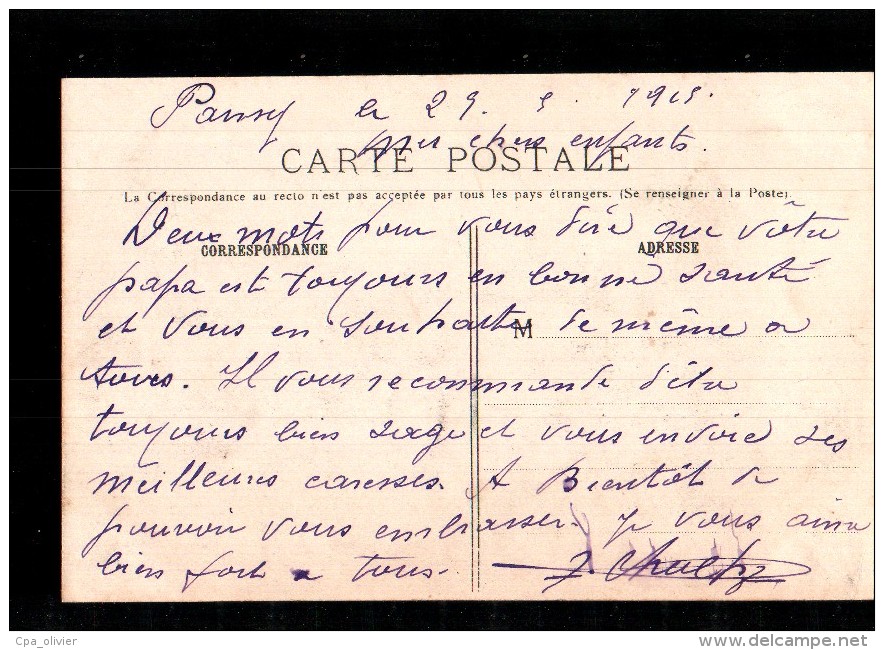 le 29. 1915.
Mes chers enfants.
CARTE POSTALE
La Correspondance au recto n'est pas acceptée par tous les pays étrangers. (Se renseigner à la Poste).
Deux mots pour vous dire que vôtre
CORRESPONDANCE ADRESSE
papa est toujours en bonne santé
et vous en souhaite de même a
M
tous. Il vous recommande d'être
toujours bien sage et vous envoie ses
meilleures caresses. A Bientôt de
pouvoir vous embrasser. Je vous aime
bien fort a tous.
Cpa_olivier
www.delcampe.net